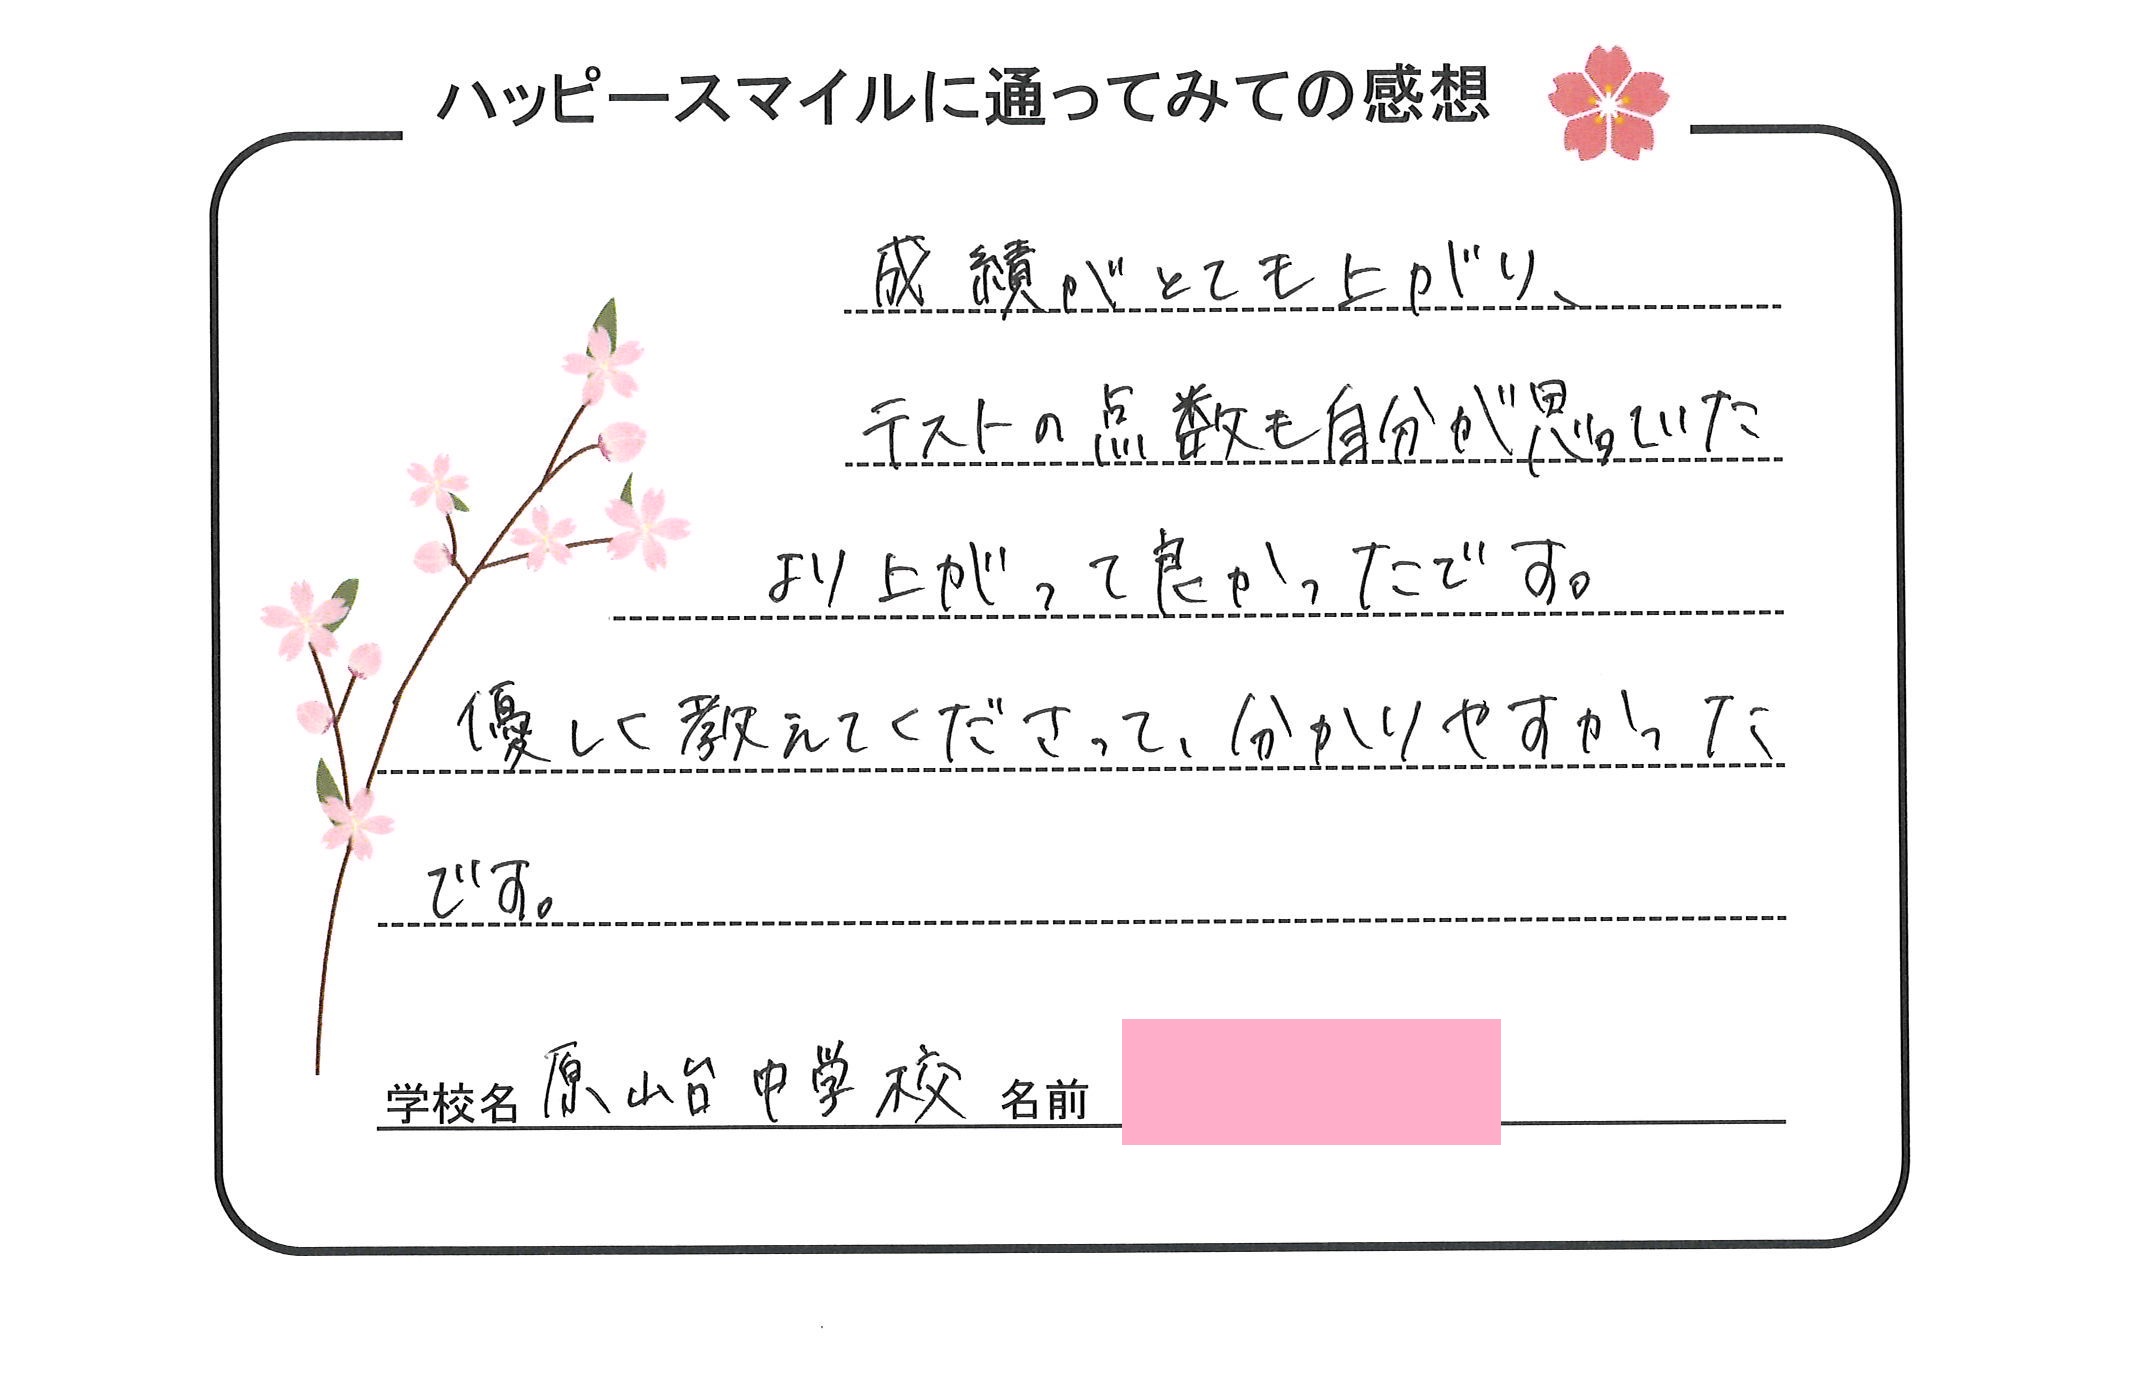 ハッピースマイルに通ってみての感想
成績がとても上がり、
テストの点数も自分が思っていた
より上がって良かったです。
優しく教えてくださって、分かりやすかった
です。
学校名 原山台中学校 名前